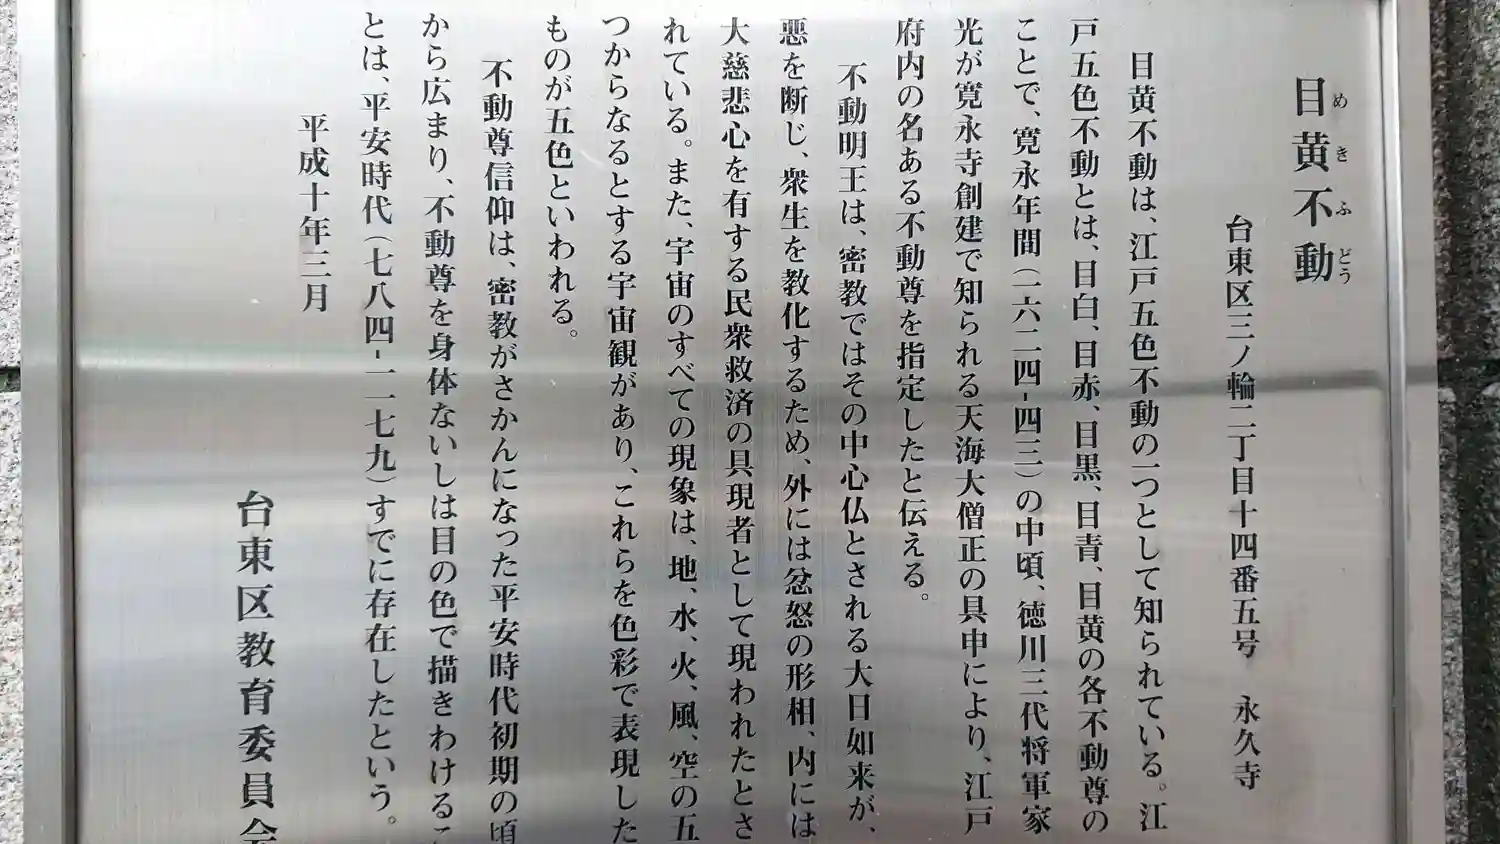 目黄不動
めきふどう
台東区三ノ輪二丁目十四番五号　永久寺
目黄不動は、江戸五色不動の一つとして知られている。江
戸五色不動とは、目白、目赤、目黒、目青、目黄の各不動尊の
ことで、寛永年間（一六二四-四三）の中頃、徳川三代将軍家
光が寛永寺創建で知られる天海大僧正の具申により、江戸
府内の名ある不動尊を指定したと伝える。
不動明王は、密教ではその中心仏とされる大日如来が、
悪を断じ、衆生を教化するため、外には忿怒の形相、内には
大慈悲心を有する民衆救済の具現者として現われたとさ
れている。また、宇宙のすべての現象は、地、水、火、風、空の五
つからなるとする宇宙観があり、これらを色彩で表現した
ものが五色といわれる。
不動尊信仰は、密教がさかんになった平安時代初期の頃
から広まり、不動尊を身体ないしは目の色で描きわけるこ
とは、平安時代（七八四-一一七九）すでに存在したという。
平成十年三月
台東区教育委員会